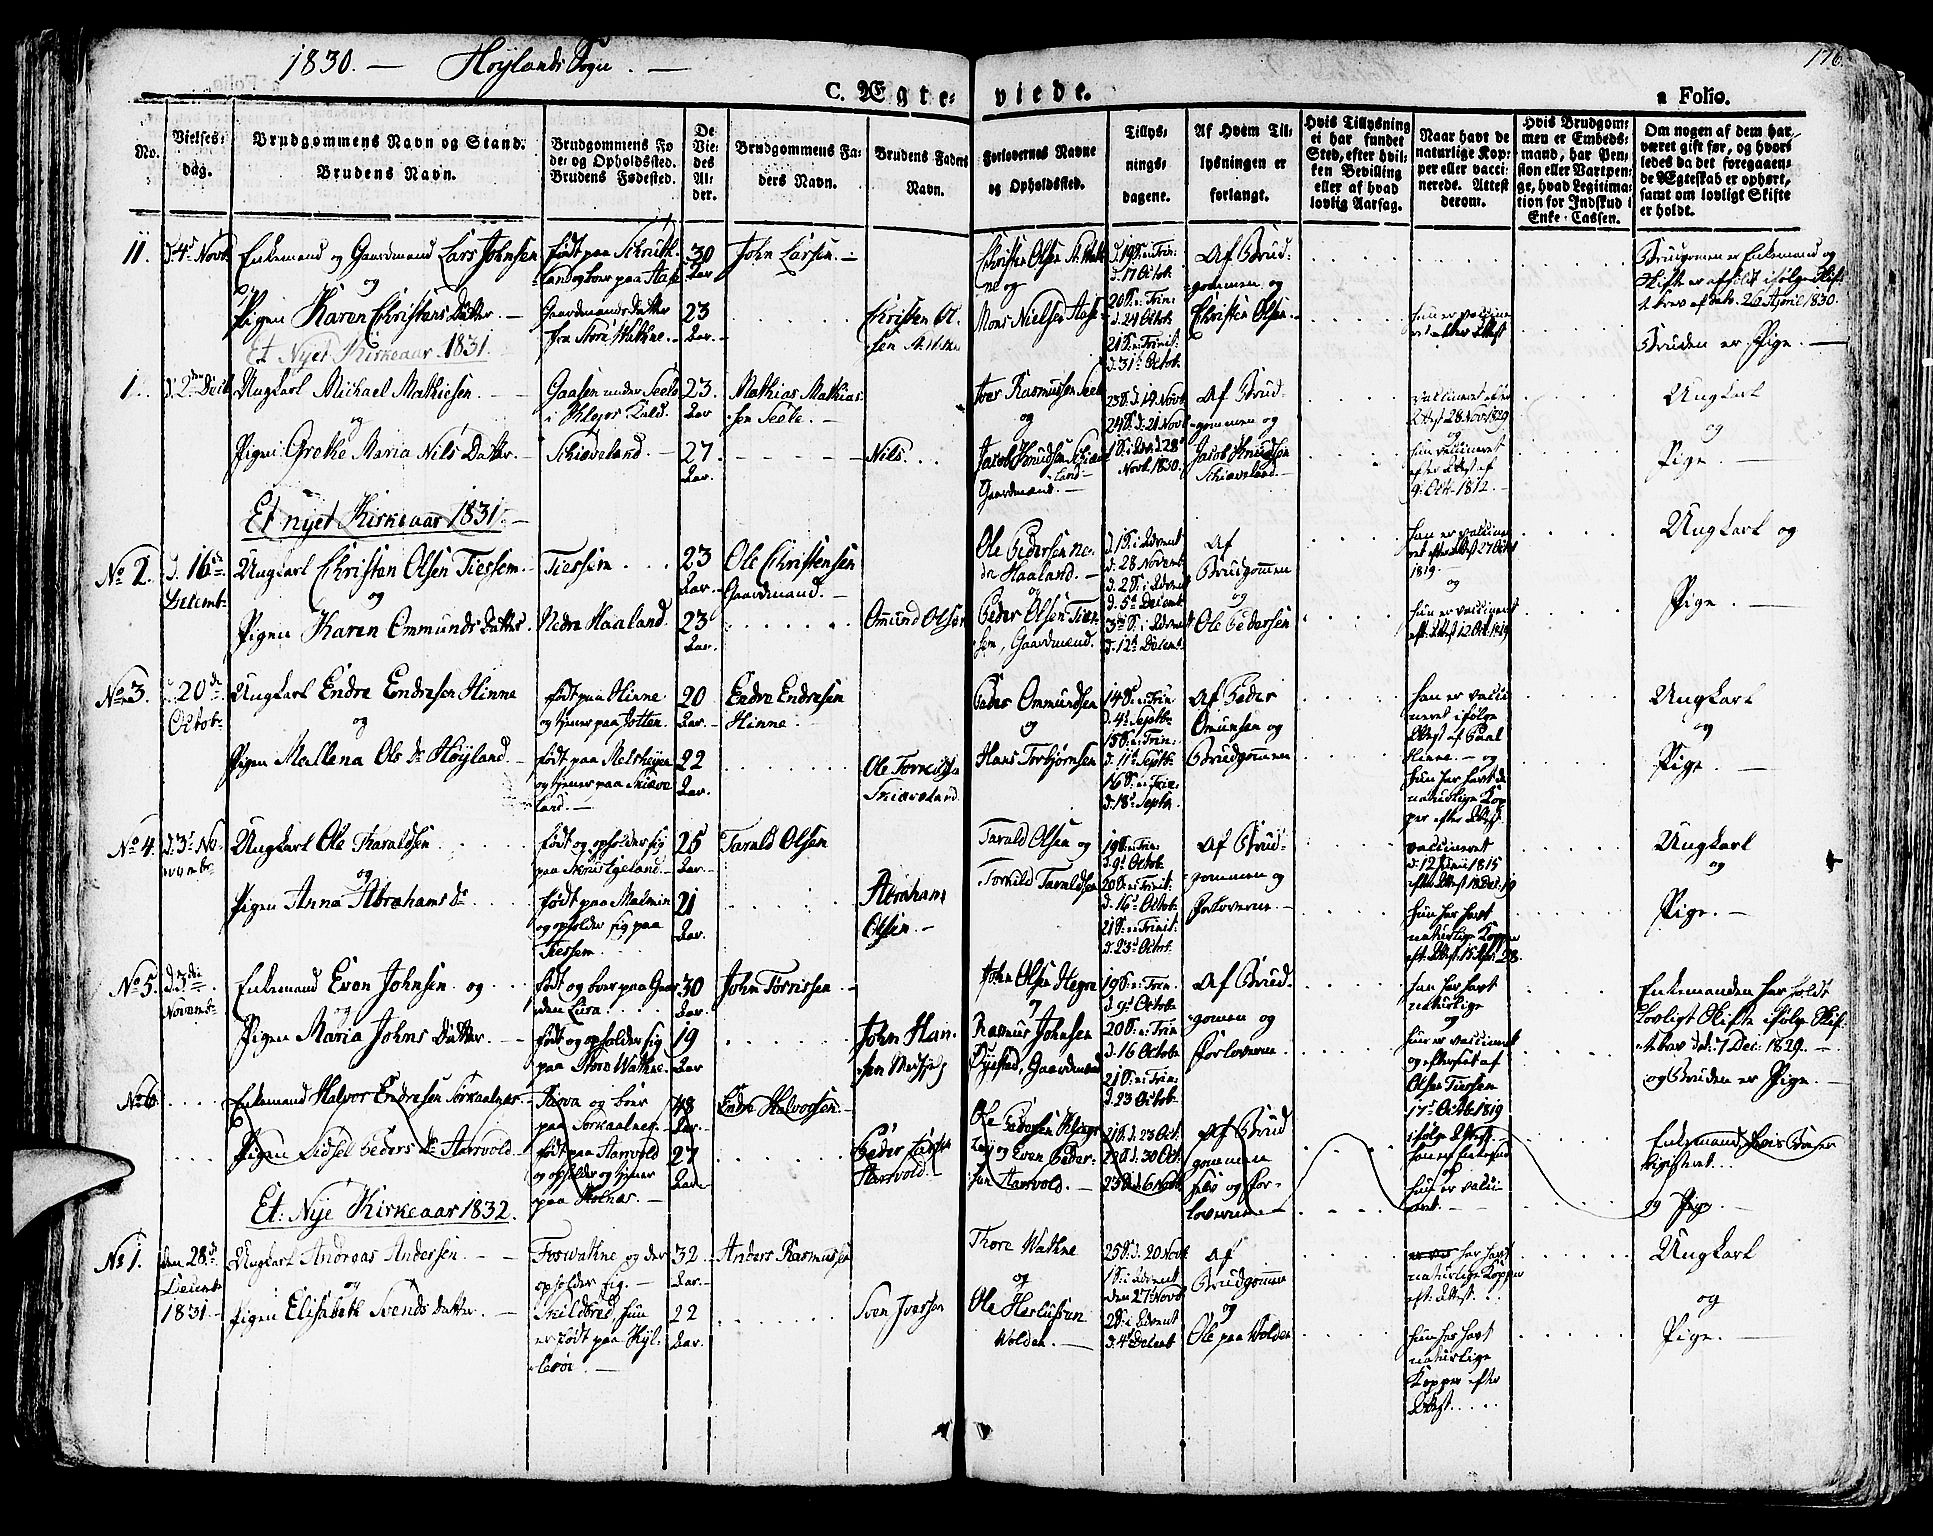 1830. — Høylands Sogn. —
176
C. Ægte-viede.
a Folio.
No.
Vielses-dag.
Brudgommens Navn og Stand.
Brudens Navn.
Brudgommens Fø-
de- og Opholdssted.
Brudens Fødested.
De
Vie-
des
Al-
der.
Brudgommens Fa-
ders Navn.
Brudens Faders
Navn.
Forlovernes Navne
og Opholdssted.
Tillys-
nings-
dagene.
Af Hvem Til-
lysningen er
forlangt.
Hvis Tillysning
ei har fundet
Sted, efter hvil-
ken Bevilling
eller af hvad
lovlig Aarsag.
Naar havt de
naturlige Kop-
per eller vacci-
nerede. Attest
derom.
Hvis Brudgom-
men er Embeds-
mand, har Pen-
sion eller Vartpen-
ge, hvad Legitima-
tion for Indskud i
Enke-Cassen.
Om nogen af dem har
været gift før, og hvor-
ledes da det foregaaen-
de Ægteskab er ophørt,
samt om lovligt Skifte
er holdt.
11. d. 4de Novb. Enkemand og Gaardmand Lars Johnsen
og
Pigen Karen Christens Datter. —
født paa Schrüth-
land og boer paa Hase
Gaardmands Datter
fra Store Wathne. —
30
Aar
23
Aar.
John Larsen. —
Christen Ol-
sen
Christen Olsen St. Wath-
ne og
Mons Nielsen Hase
d. 19 S. e. Trin.
d. 17 Octob.
20 S. e. Trin:
d. 24 Octob.
21 S. e. Trinit:
d. 31te Octob.
Af Brud-
gommen og
Christen Olsen. —
hun er vaccine-
ret efter Attest
Brudgomen er Enkemand og
Skifte er afholdt ifølge Skif-
tebrev af dato 26 April 1830.
Bruden er Pige. —
Et Nyet Kirkeaar 1831.
1. d. 2den Decb. Ungkarl Michael Mathiesen. —
og
Pigen Grethe Maria Nils Datter. —
Gaasen under Seele
i Kleps Kald.
Schiæveland. —
23.
Aar
27.
Aar.
Mathias Mathias-
sen Seele. —
Nils. . .
Iver Rasmussen Seele
og
Jacob Knudsen Schiæve-
land —
Gaardmænd. —
23 S. d. 14 Novb
24 S. d. 21 Novb
1 S. i Adv. d. 28
Novb. 1830.
Af Brud-
gommen og
Jacob Knudsen
Schiæveland. —
vaccineret efter
Attest 28 Nov 1829
og
hun vaccineret
efter Attest af
9. Octb. 1812. —
Ungkarl
og
Pige. —
Et nyet Kirkeaar 1831. —
No 2. d. 16de
Decemb.
Ungkarl Christen Olsen Tiessem. —
og
Pigen Karen Ommunds Datter.
Tiessem . . .
Nedre Haaland.
23
Aar. —
23
Aar.
Ole Christensen
Gaardmand. —
Omund Olsen
Ole Pedersen Ne-
dre Haaland. —
og
Peder Olsen Ties-
sem, Gaardmænd.
d. 1 S. i Advent
d. 28 Novemb
d. 2 S. i Advent
d. 5te Decemb
3die S. i Advent
d. 12te Decemb.
Af
Brudgommen
og
Ole Pedersen
han er vaccine-
ret efter Attest 27 Octb
1819. —
og
hun er vaccineret
eft. Attest 12 Oct. 1819
Ungkarl og
Pige. —
No 3. d. 20de
Octob.
Ungkarl Endre Endresen Hinne
og
Pigen Mallena Ols Dr Høyland. —
født paa Hinne
og tjener paa Jotten.
født paa Melsheien
og tjener paa Skiæve-
land. —
20
Aar. —
22
Aar.
Endre Endresen
Hinne. —
Ole
Skiæveland.
Peder Ommundsen
og
Hans Torbjørnsen
14 S. e. Trin.
d. 4de Septb.
15 S. e. Trin:
d. 11te Septb.
16 S. e. Trin:
d. 18de Septb.
Af Peder
Omunsen og
Brudgommen
han er vacci-
neret ifølge
Attest af Paal
Hinne. — og
hun har havt de
naturlige Kop-
per efter Attest.
Ungkarl
og
Pige. —
No 4. d. 3de No-
vember.
Ungkarl Ole Taraldsen
og
Pigen Anna Abrahams Dr
født og opholder sig
paa
født paa Malmin
og opholder sig paa
Tiessem.
25
Aar. —
21
Aar.
Tarald Olsen
Abraham
Olsen. —
Tarald Olsen og
Torkild Taraldsen
19 S. e. Trin.
d. 9de Octob.
20 S. e. Trinit:
d. 16de Octob.
21 S. e. Trinit:
d. 23de Octob.
Af Brud-
gommen og
Forloverne. —
vaccineret
d. 12 Junii 1815
efter Attest 18 Dec. 19
hun har havt
naturlige Kopper
eft. Attest
Ungkarl
og
Pige. —
No 5. d. 3die
Novemb.
Enkemand Even Johnsen og
og
Pigen Maria Johns Datter. —
født og boer paa Gaar-
den Lura. . .
født og opholder sig
paa Store Wathne.
30
Aar.
19
Aar
John Torrissen. —
John Han-
sen
John Olsen Hegre
og
Rasmus Johnsen
Øyestad, Gaardmænd
19 S. e. Trin.
d. 9de Octob.
20 S. e. Trin
d. 16 Octob.
21 S. e. Trin:
d. 23 Octob.
Af Brud-
gomen og
Forloverne.
han har havt
naturlige
og
hun er vaccineret
og af
Olsen Tiessem
17de Octb. 1819
ifølge Attest
Enkemanden har holdt
Lovligt Skifte ifølge Skif-
tebrev dat: 7 Dec. 1829. —
og Bruden er Pige. —
No 6. Enkemand Halvor Endresen Sørkaalnes. —
Pigen Sidsel Peders Dr Aarvold. —
og boer
paa Sørkaalnes. —
født paa Aarvold
og opholder og tjener
paa Holnæs. —
48
Aar. —
27
Aar.
Endre Halvorsen. —
Peder
Aarvold. —
Ole Pedersen
og Even Peder-
sen Aarvold. —
21 S. d. 23 Oct.
22 S. d. 30 Oct.
23 S. d. 6 Novb.
Af Brud-
gommen
selv og For-
loverne —
han er
og
hun er vacci-
neret. —
Enkemand
og Pige. —
Et: Nye Kirkeaar 1832.
No 1. den 28de
Decemb
1831. —
Ungkarl Andreas Andersen. —
og
Pigen Elisabeth Svends Datter. —
Foswathne og der
opholder sig. —
hun
er født paa Hyl-
lerøe. —
32
Aar.
22
Aar.
Anders Rasmussen
Sven Iversen
Thore Wathne
og
Ole
Wolden. —
25 S. d. 20 Novb
1 S. i Advent
den 27de Novb
2 S. i Advent
d. 4de Decemb
Af
Brudgommen
og
Ole paa Wolden
har havt
naturlige Kopper
eft: Attest. . .
hun har havt
naturlige
Kopper efter
Attest. . . .
Ungkarl
og
Pige. —